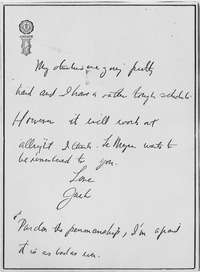 My are going pretty
hard and I have a rather tough schedule.
However it will work out
allright I think. Le Moyne wants to
be remembered to you.
Love
Jack
Pardon the penmanship, I'm afraid
it is as bad as ever.